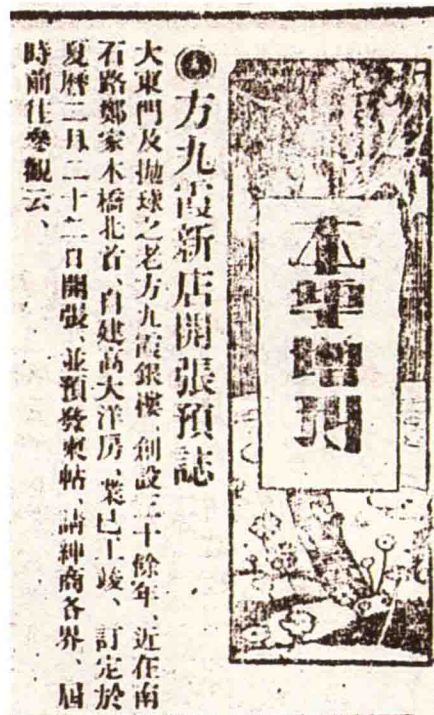 本埠增刊
方九霞新店開張預誌
大東門及拋球之老方九霞銀樓、創設三十餘年、近在南
石路鄭家木橋北首、自建高大洋房、業已工竣、訂定於
夏曆二月二十二日開張、並預發柬帖、請紳商各界、屆
時前往參觀云、